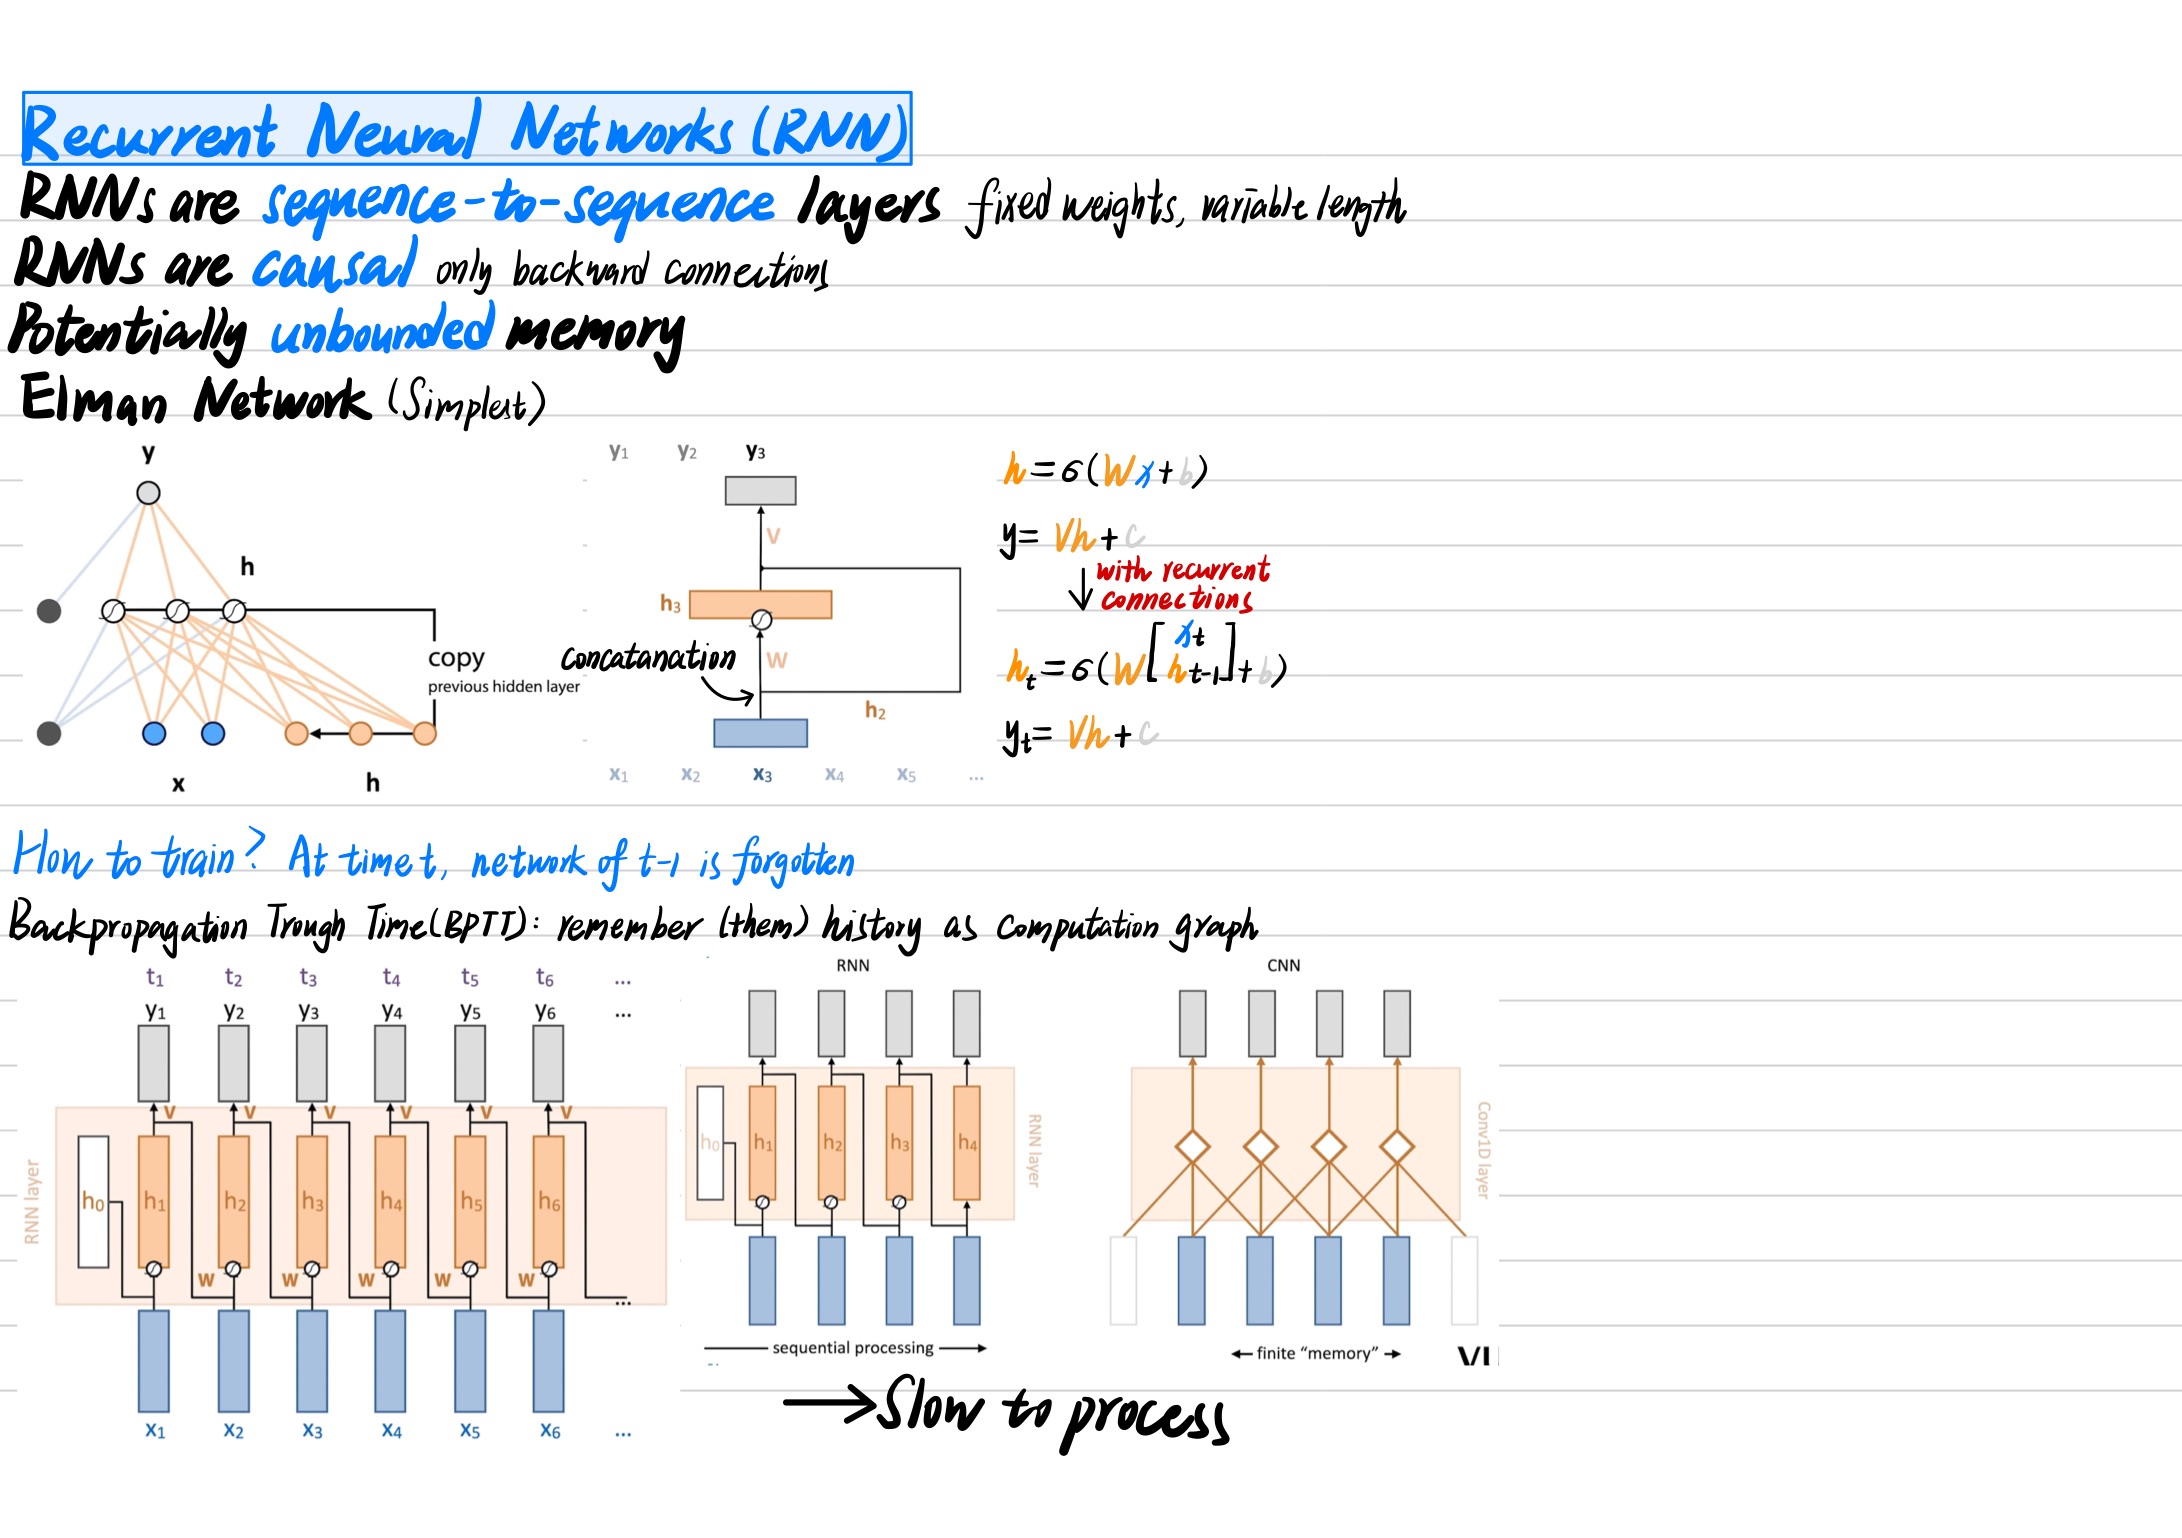 Recurrent Neural Networks (RNN)
RNNs are sequence-to-sequence layers fixed weights, variable length
RNNs are causal only backward connections
Potentially unbounded memory
Elman Network (Simplest)
y
h
copy
previous hidden layer
x h
y₁ y₂ y₃
V
h₃
Concatanation
W
h₂
x₁ x₂ x₃ x₄ x₅ ...
h = σ(Wx + b)
y = Vh + c
↓ with recurrent
connections
hₜ = σ(W[xₜ hₜ₋₁] + b)
yₜ = Vh + c
How to train? At time t, network of t-1 is forgotten
Backpropagation Trough Time(BPTT): remember (them) history as computation graph
t₁ t₂ t₃ t₄ t₅ t₆ ...
y₁ y₂ y₃ y₄ y₅ y₆ ...
V V V V V V
RNN layer
h₀ h₁ h₂ h₃ h₄ h₅ h₆
W W W W W
...
x₁ x₂ x₃ x₄ x₅ x₆ ...
RNN
h₀ h₁ h₂ h₃ h₄
RNN layer
sequential processing
CNN
Conv1D layer
finite “memory”
→ Slow to process